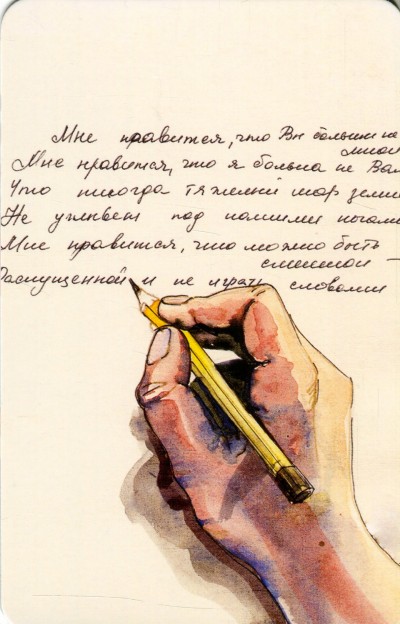 Мне нравится, что Вы больны не
мной
Мне нравится, что я больна не Вам
Что никогда тяжелый шар земн
Не уплывет под нашими ногами
Мне нравится, что можно быть
смешной –
Распущенной и не играть словами